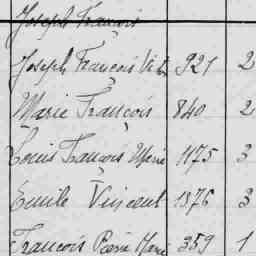 Joseph François
Joseph François Vict 921 2
Marie François 840 2
Louis François Marie 1175 3
Emile Vincent 1376 3
François Pierre Marie 359 1